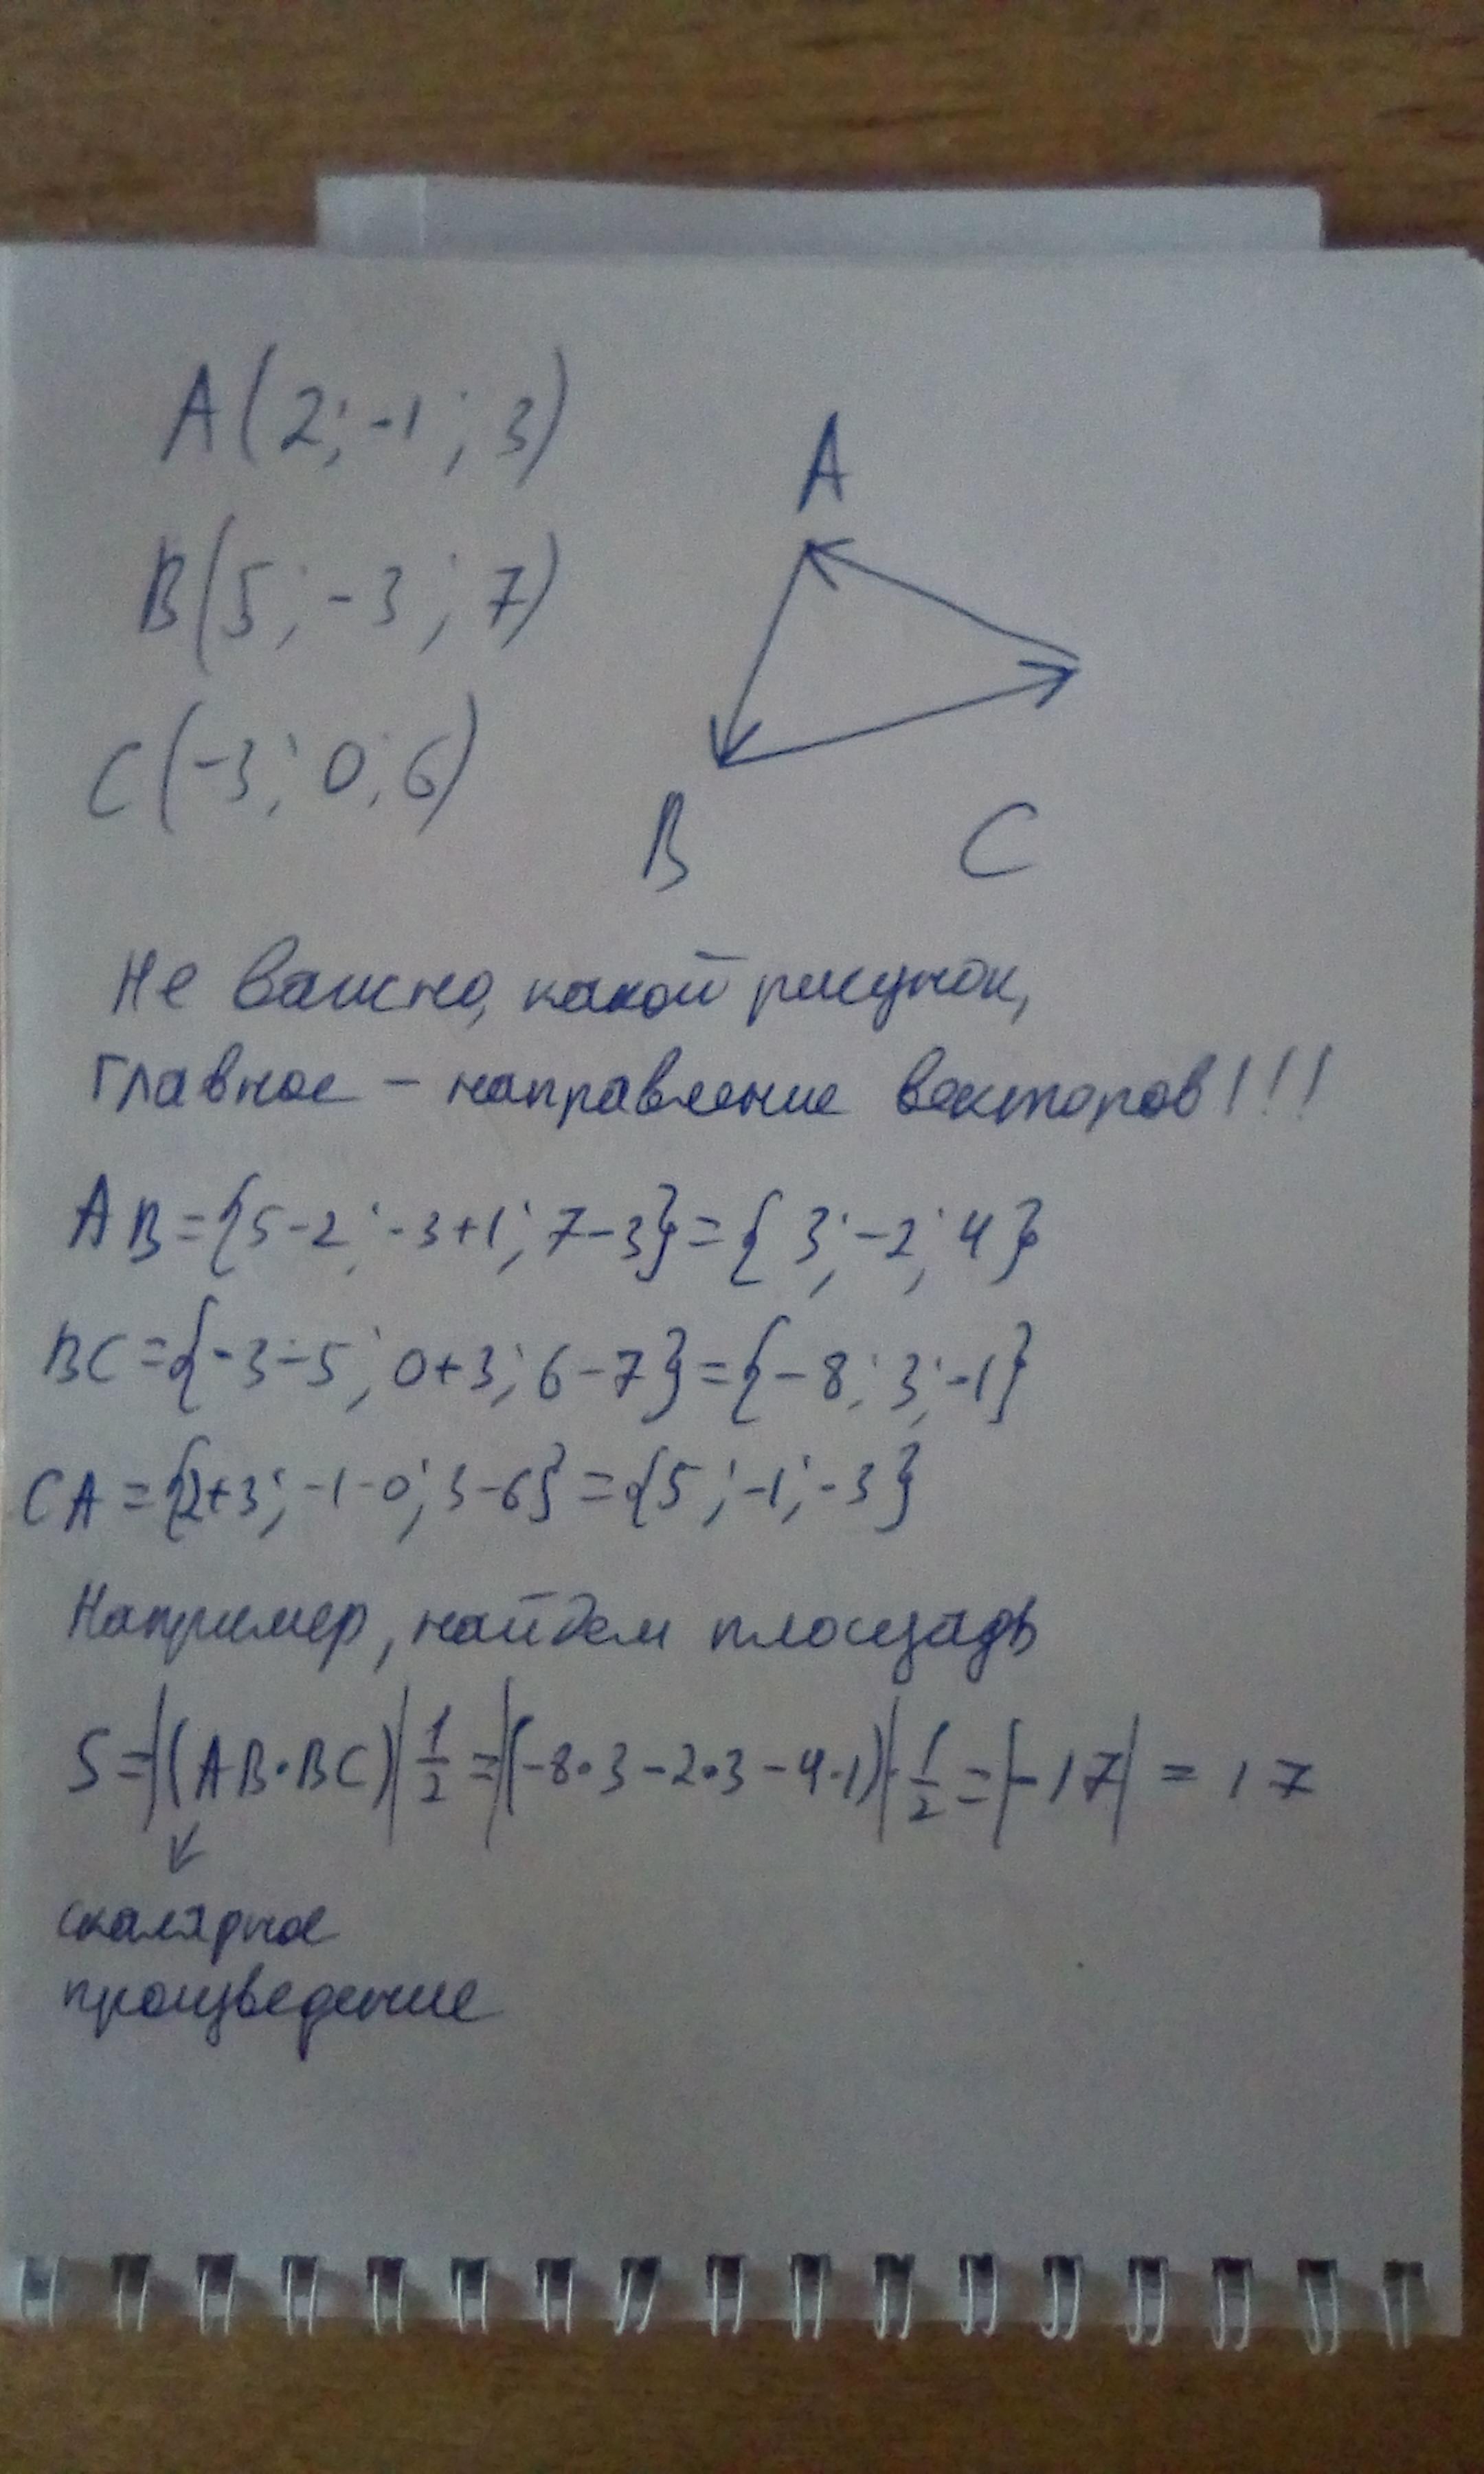 A(2; -1; 3)
B(5; -3; 7)
C(-3; 0; 6)
A
B
C
Не важно, какой рисунок,
главное - направление векторов!!!
AB={5-2; -3+1; 7-3}={3; -2; 4}
BC={-3-5; 0+3; 6-7}={-8; 3; -1}
CA={2+3; -1-0; 3-6}={5; -1; -3}
Например, найдем площадь
S=|(AB·BC)|1/2=|(-8·3-2·3-4·1)|·1/2=|-17|=17
скалярное
произведение